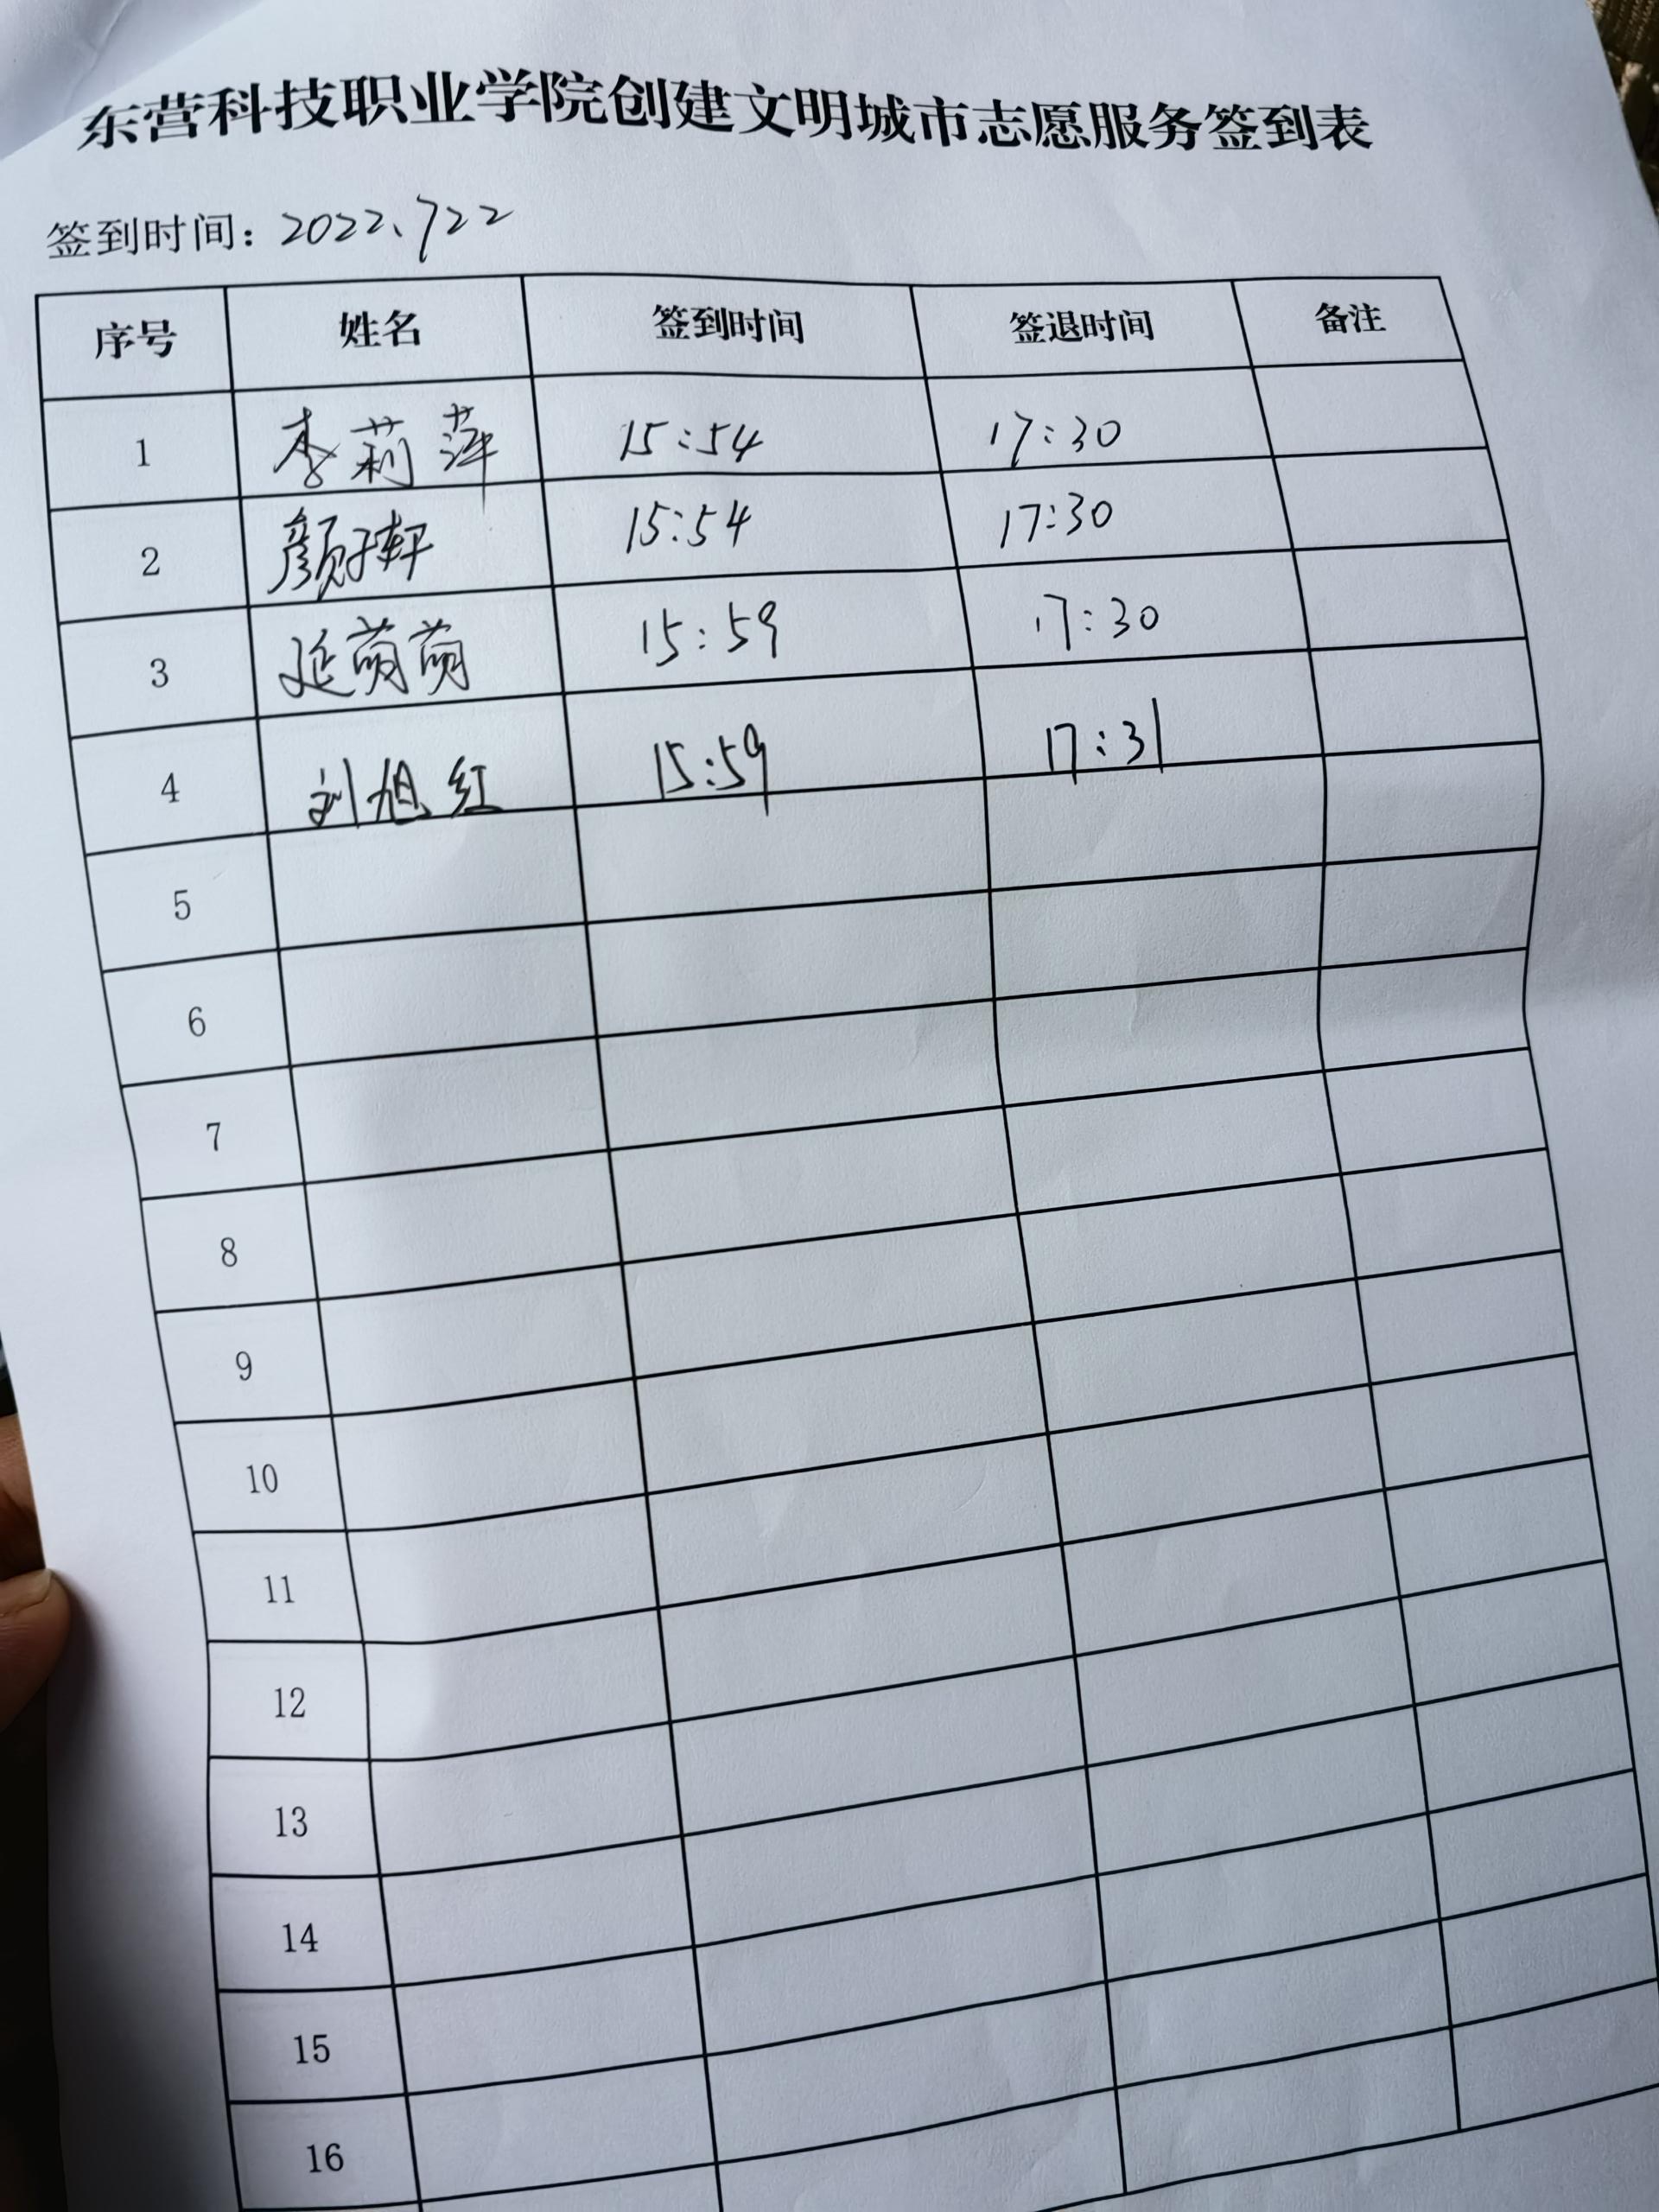 东营科技职业学院创建文明城市志愿服务签到表
签到时间：2022、722
序号 姓名 签到时间 签退时间 备注
1 李莉萍 15:54 17:30
2 颜子轩 15:54 17:30
3 延萌萌 15:59 17:30
4 刘旭红 15:59 17:31
5
6
7
8
9
10
11
12
13
14
15
16